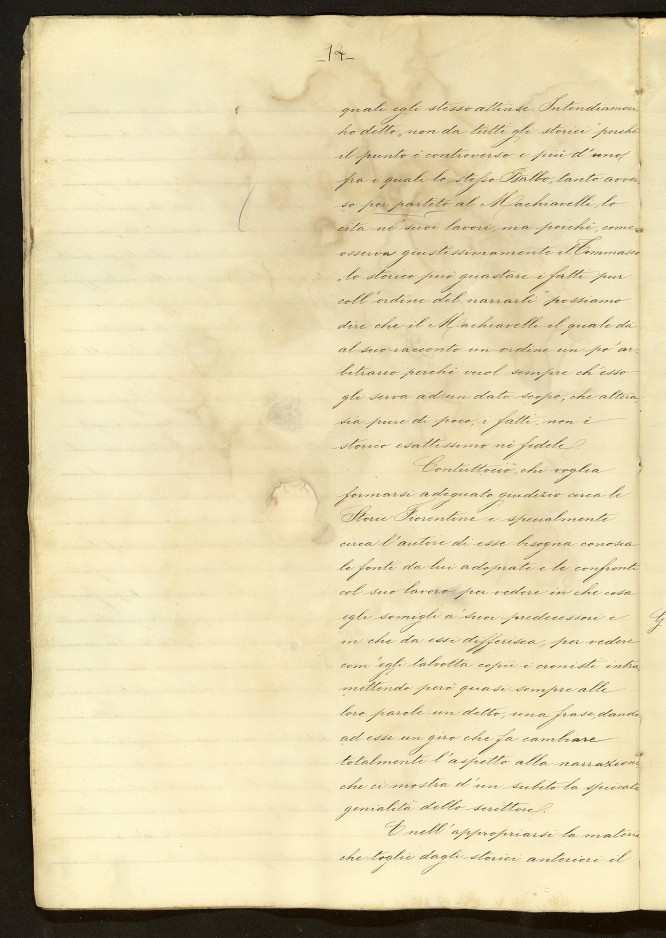 -12-
quali egli stesso attinse. Intendiamoci
ho detto „non da tutti gli storici" perchè
il punto è controverso e più d'uno,
fra i quali lo stesso Balbo, tanto avver
so per partito al Machiavelli, lo
cita ne' suoi lavori, ma perchè, come
osserva giustissimamente il Tommaseo
„lo storico può guastare i fatti pur
coll'ordine del narrarli" possiamo
dire che il Machiavelli il quale dà
al suo racconto un ordine un po' ar
bitrario perchè vuol sempre ch'esso
gli serva ad un dato scopo, che altera
sia pure di poco, i fatti, non è
storico esattissimo nè fedele.
Contuttociò, chi voglia
formarsi adeguato giudizio circa le
Storie Fiorentine e specialmente
circa l'autore di esse bisogna conosca
le fonti da lui adoprate e le confronti
col suo lavoro per vedere in che cosa
egli somigli a' suoi predecessori e
in che da essi differisca, per vedere
com'egli talvolta copii i cronisti intra
mettendo però quasi sempre alle
loro parole un detto, una frase, dando
ad esse un giro che fa cambiare
totalmente l'aspetto alla narrazione
che ci mostra d'un subito la spiccata
genialità dello scrittore.
E nell'appropriarsi la materia
che toglie dagli storici anteriori il